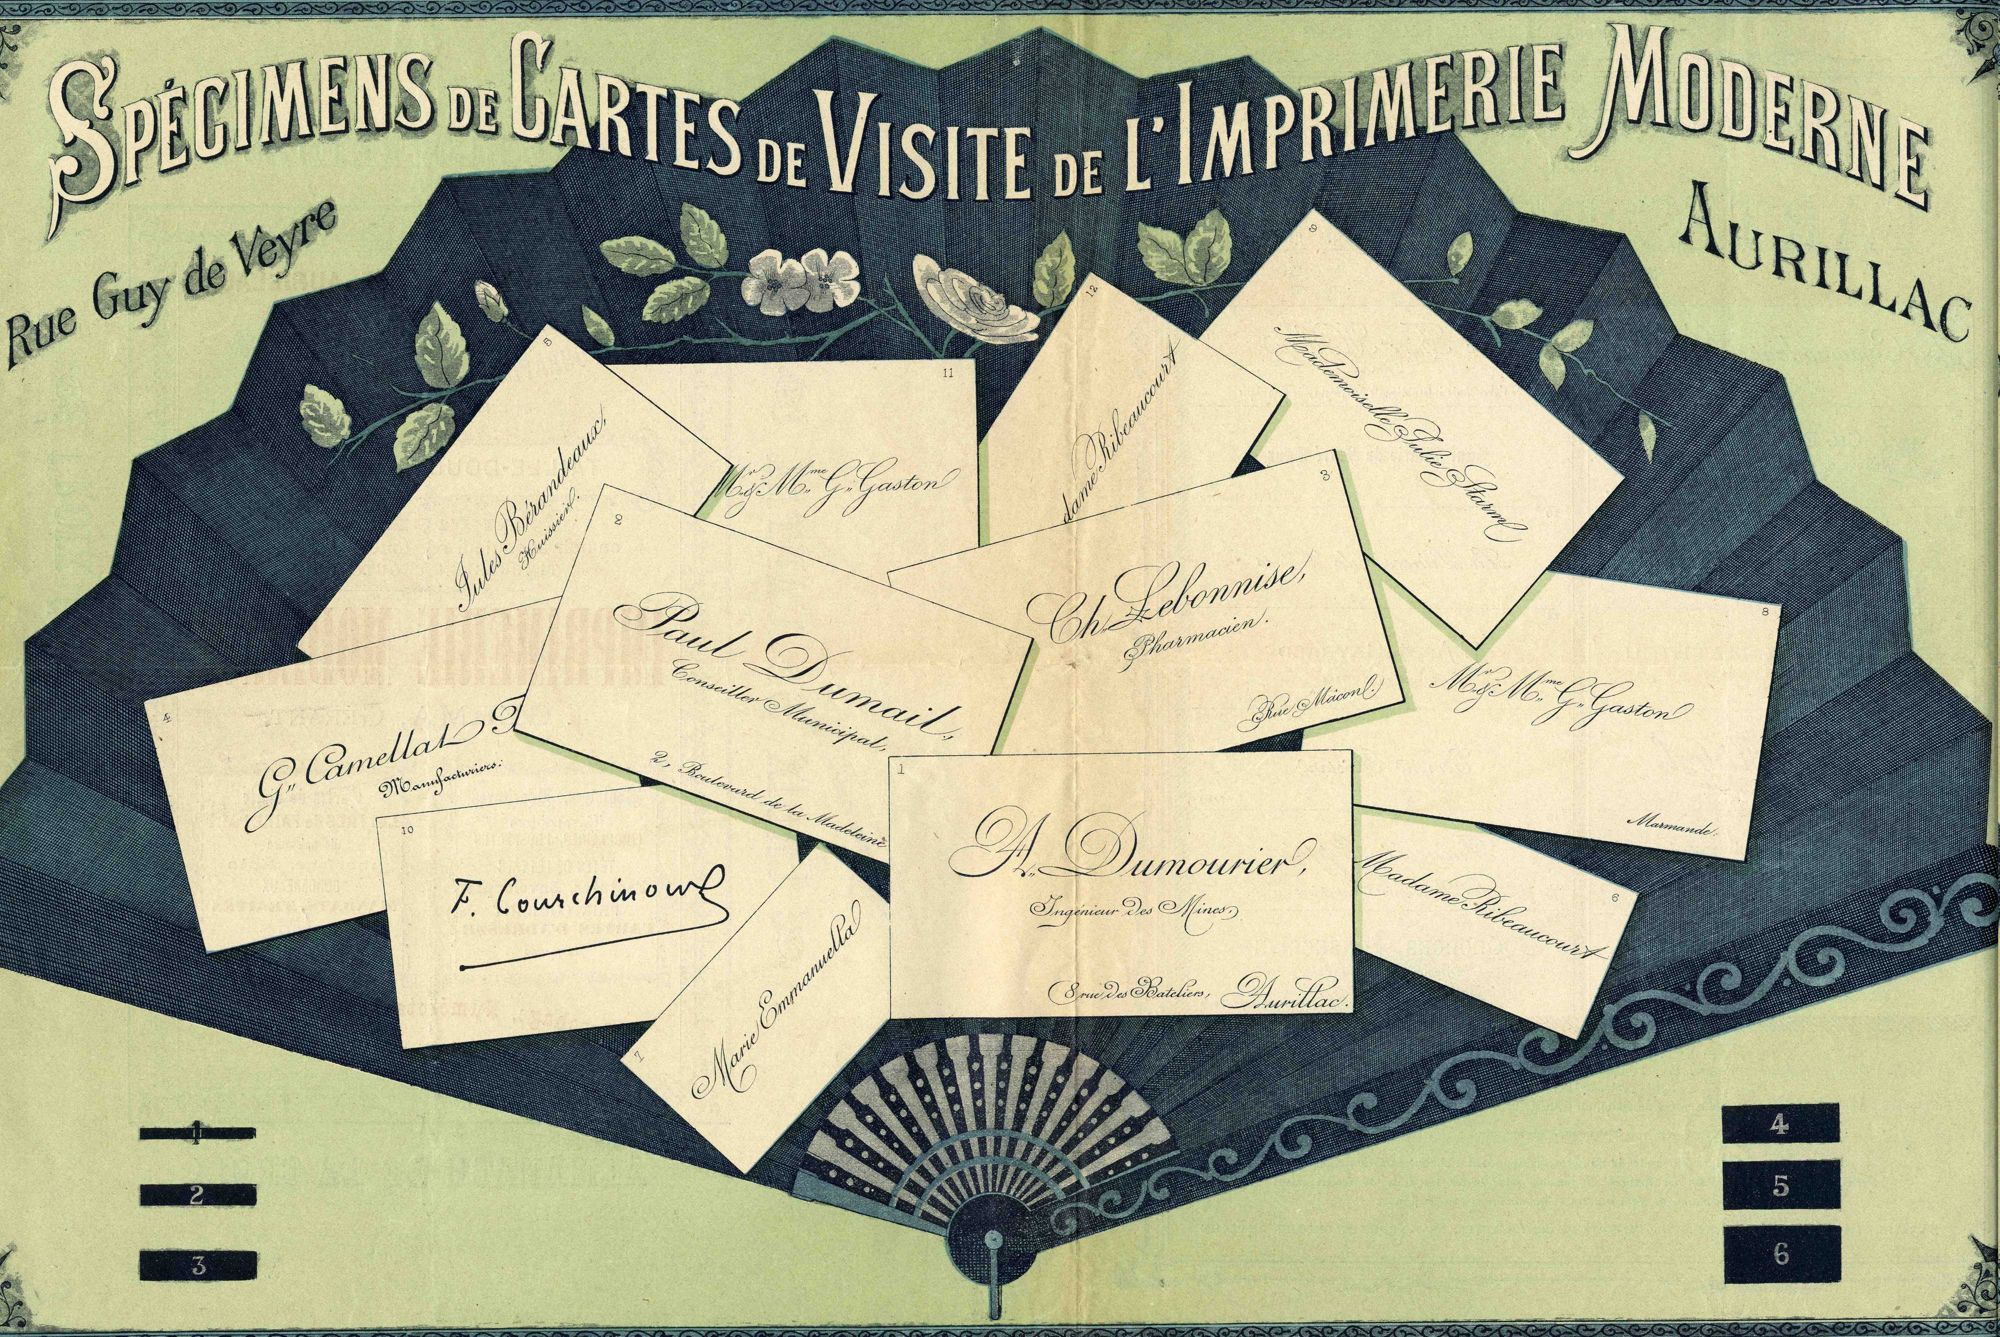 SPÉCIMENS DE CARTES DE VISITE DE L'IMPRIMERIE MODERNE
Rue Guy de Veyre
AURILLAC
5
Jules Bérandeaux,
Huissier.
11
Mr & Mme G. Gaston
12
dame Ribeaucourt
9
Mademoiselle Julie Starm
2
Paul Dumail,
Conseiller Municipal,
2, Boulevard de la Madeleine
3
Ch. Lebonnise,
Pharmacien.
Rue Mâcon.
8
Mr & Mme G. Gaston
Marmande.
4
G. Camellat
Manufacturiers.
10
F. Courchinoux
1
A. Dumourier,
Ingénieur des Mines,
8 rue des Bateliers, Aurillac.
6
Madame Ribeaucourt
7
Marie Emmanuella
1
2
3
4
5
6